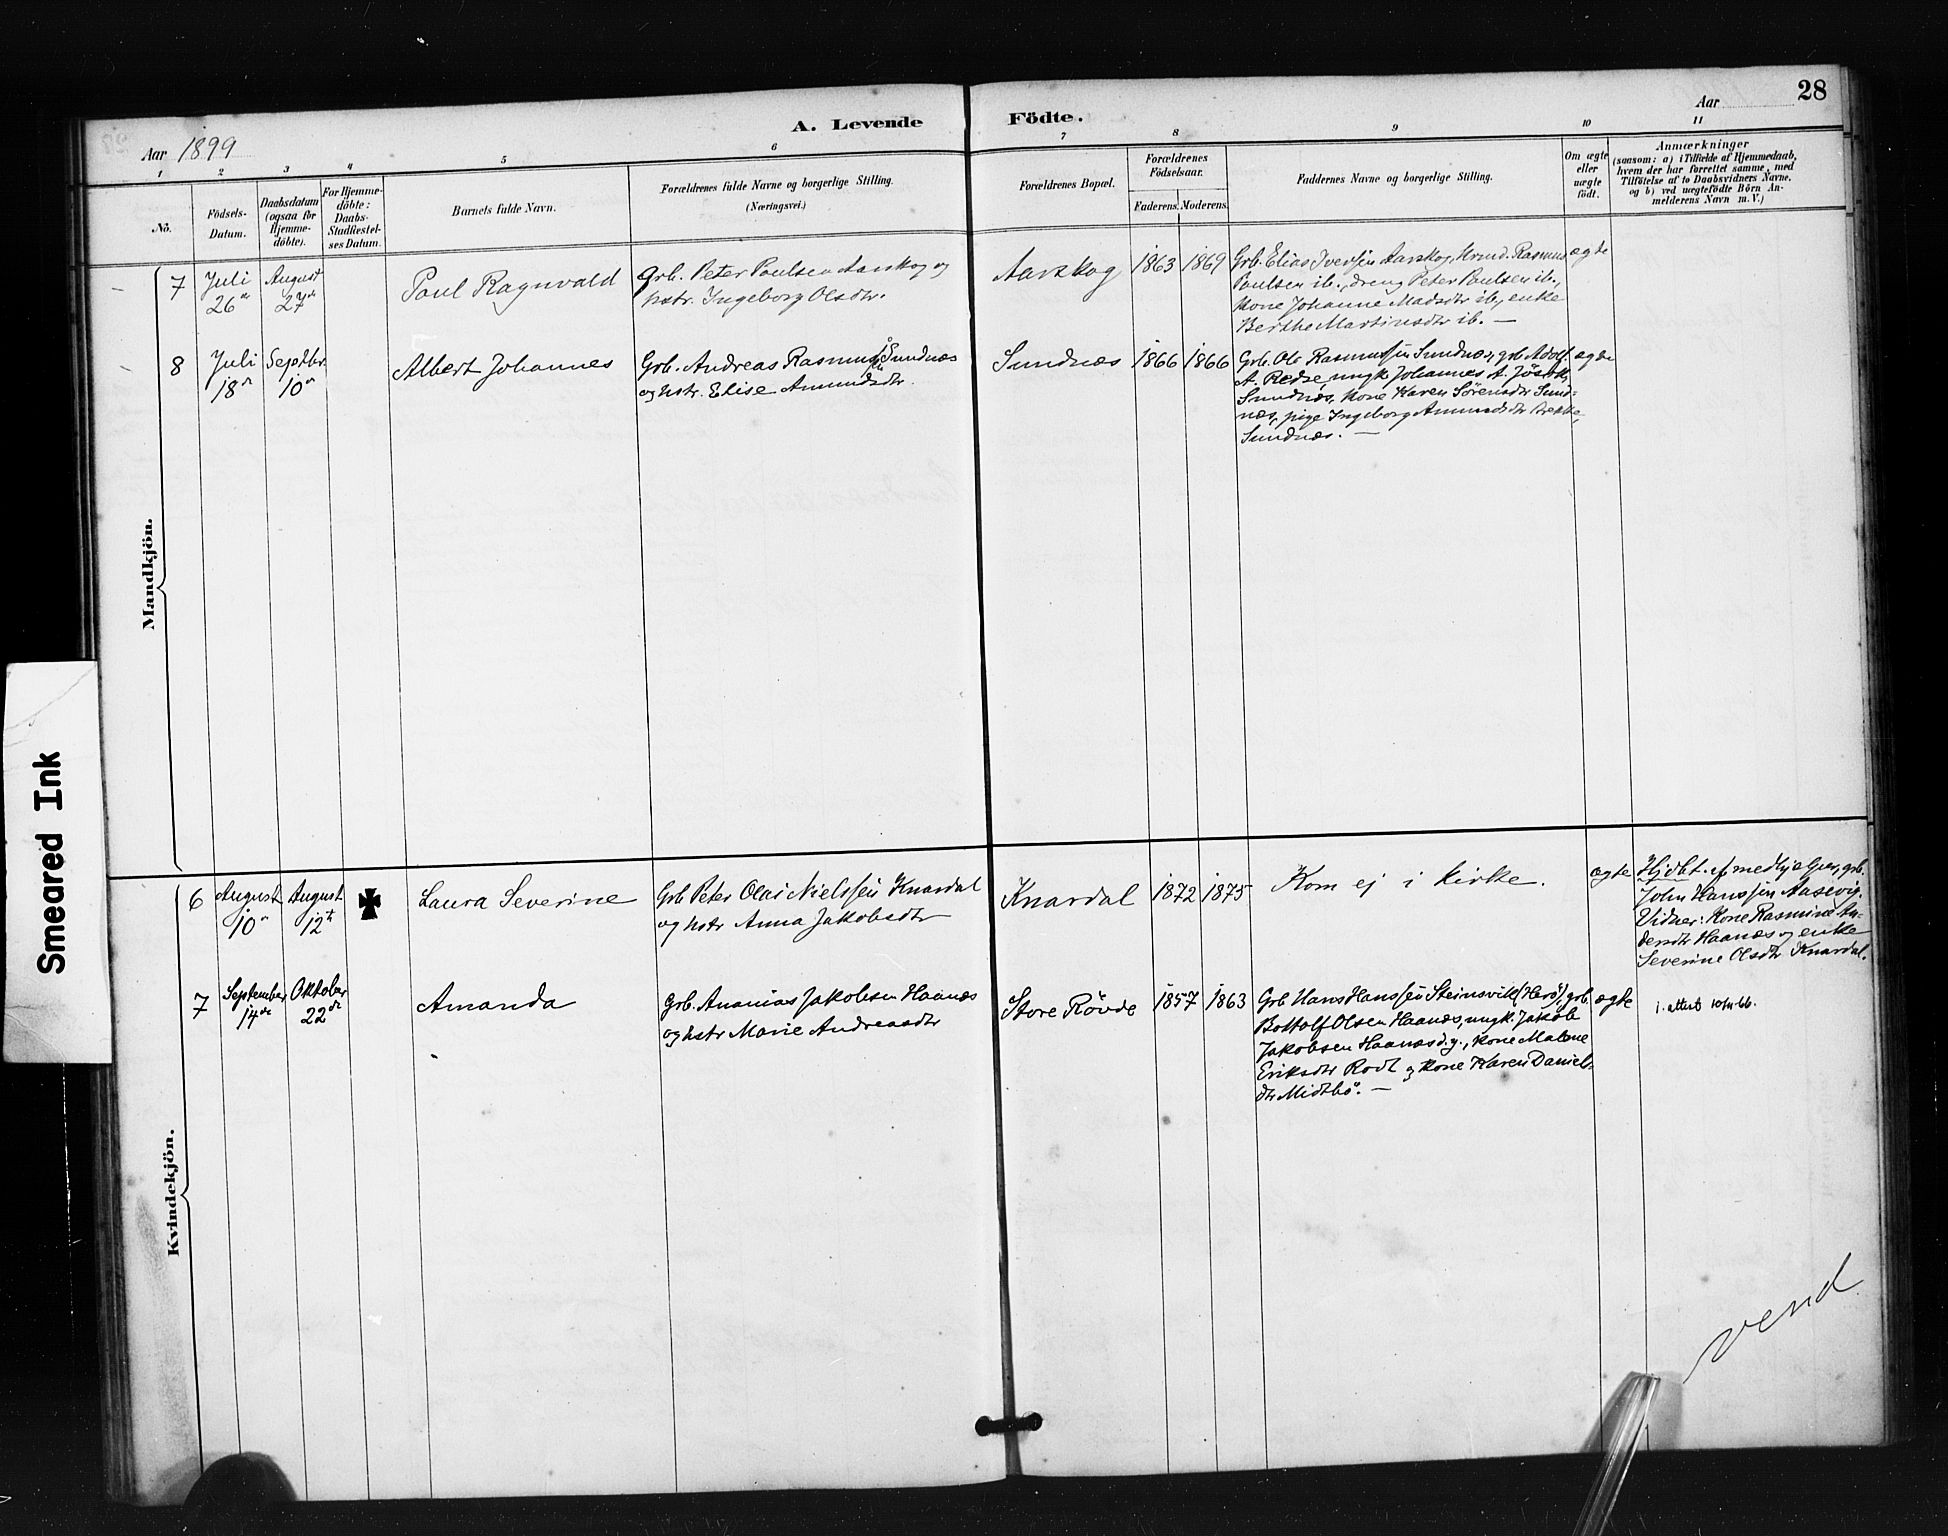 28
A. Levende Födte.
Aar 1899
Aar
1 2 3 4 5 6 7 8 9 10 11
No.
Födsels-
Datum.
Daabsdatum
(ogsaa for
Hjemme-
döbte).
For Hjemme-
döbte:
Daabs-
Stadfæstel-
ses Datum.
Barnets fulde Navn.
Forældrenes fulde Navne og borgerlige Stilling.
(Næringsvei.)
Forældrenes Bopæl.
Forældrenes
Födselsaar.
Faderens. Moderens.
Faddernes Navne og borgerlige Stilling.
Om ægte
eller
uægte
födt.
Anmærkninger
(saasom: a) i Tilfælde af Hjemmedaab,
hvem der har forrettet samme, med
Tilföielse af to Daabsvidners Navne.
og b) ved uægtefödte Börn An-
melderens Navn m. V.)
Mandkjön.
7
Juli
26de
August
27de
Paul Ragnvald
Grb. Peter Poulsen Aarskog og
hstr. Ingeborg Olsdtr.
Aarskog
1863 1869
Grb. Elias Iverssen Aarskog, Kmd. Rasmus
Poulsen ib., dreng Peter Poulsen ib.,
kone Johanne Madsdtr ib., enke
Berthe Martinusdtr ib. —
ægte
8
Juli
18de
Septbr.
10de
Albert Johannes
Grb. Andreas Rasmussen Sundnæs
og hstr. Elise Amundsdtr.
Sundnæs
1866 1866
Grb. Ole Rasmussen Sundnæs, grb. Adolf
A. Redse, ungk. Johannes A.
Sundnæs, kone Karen Sörensdtr Sund-
næs, pige Ingeborg Amundsdtr
Sundnæs. —
ægte
Kvindekjön.
6
August
10de
August
12te
✠
Laura Severine
Grb. Peter Olai Nielssen Knardal
og hstr Anna Jakobsdtr
Knardal
1872 1875
Kom ej i kirke.
ægte
Hjdbt. af medhjelper, grb.
John Hanssen Aasevig.
Vidner: Kone Rasmine An-
dersdtr Haanæs og enke
Severine Olsdtr Knardal.
7
September
14de
Oktober
22de
Amanda
Grb. Ananias Jakobsen Haanæs
og hstr Marie Andreasdtr
Store Rövde
1857 1863
Grb Hans Hanssen Steinsvik (Herö), grb.
Bottolf Olsen Haanæs, ungk. Jakob
Jakobsen Haanæs d.y., kone Malene
Eriksdtr Rodt og kone Karen Daniels-
dtr Midtbö. —
ægte
1. attest 10/11 66.
vend
Smeared Ink